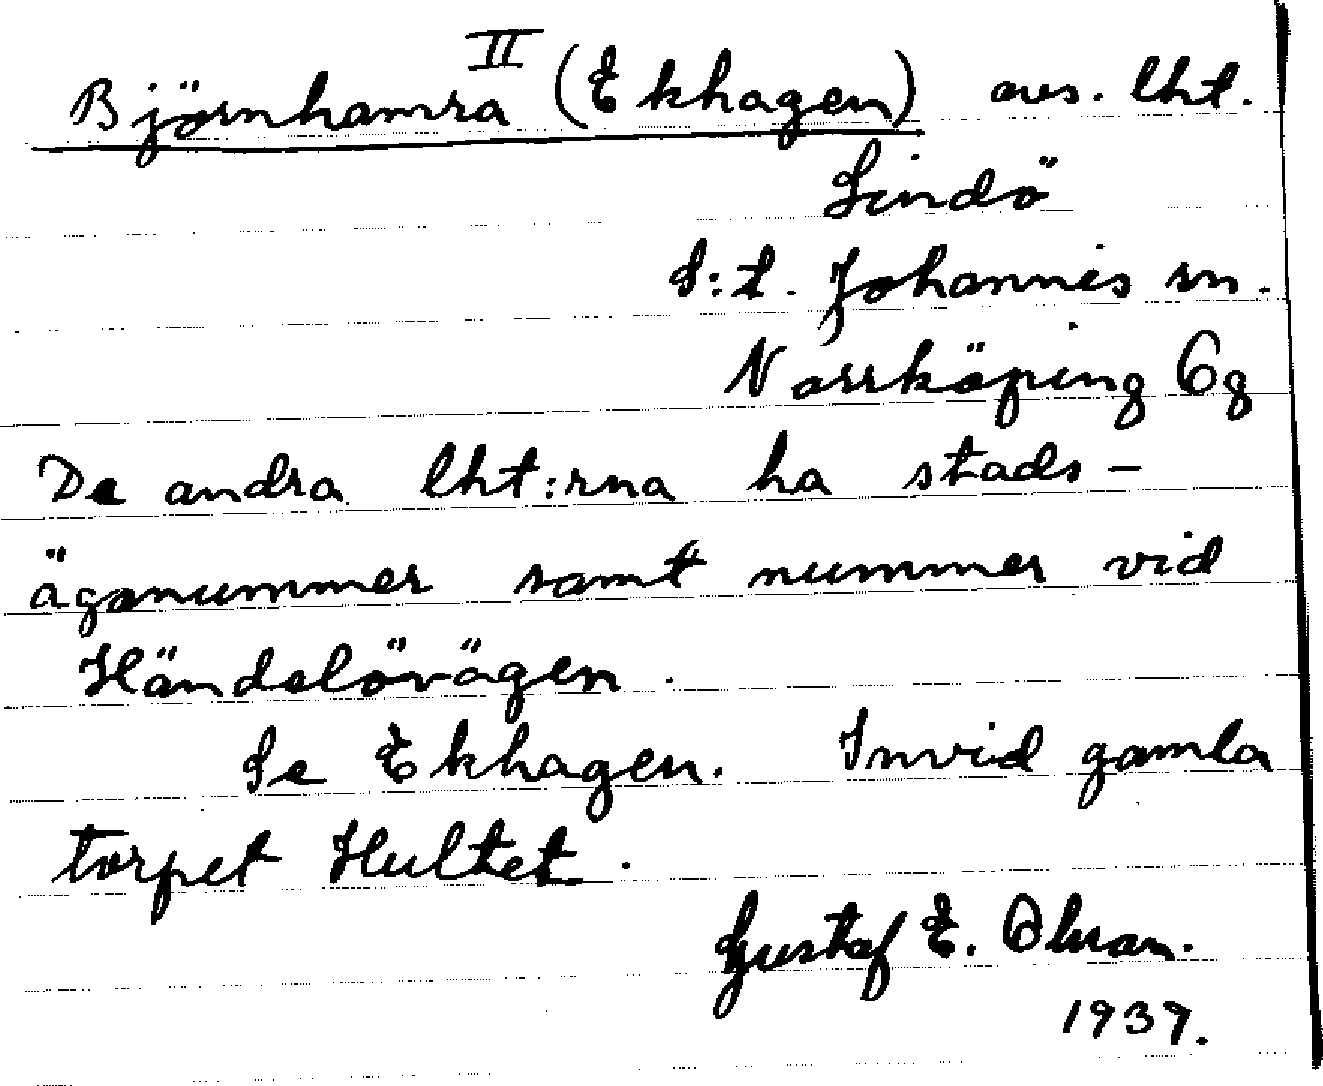 II
Björnhamra (Ekhagen) avs. lht.
Lindö
S:t. Johannis sn.
Norrköping Ög
De andra lht:rna ha stads-
äganummer samt nummer vid
Händelövägen.
Se Ekhagen. Invid gamla
torpet Hultet.
Gustaf E. Olsson.
1937.